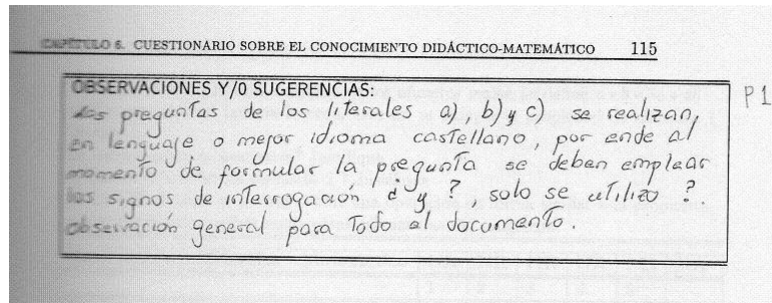 CAPÍTULO 6. CUESTIONARIO SOBRE EL CONOCIMIENTO DIDÁCTICO-MATEMÁTICO 115
OBSERVACIONES Y/0 SUGERENCIAS:
P1
Las preguntas de los literales a), b) y c) se realizan,
en lenguaje o mejor idioma castellano, por ende al
momento de formular la pregunta se deben emplear
los signos de interrogación ¿ y ?, solo se utilizo ?.
observación general para Todo el documento.